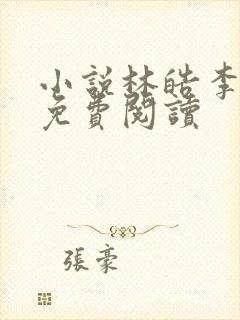 小說林皓李
免費閱讀
張豪